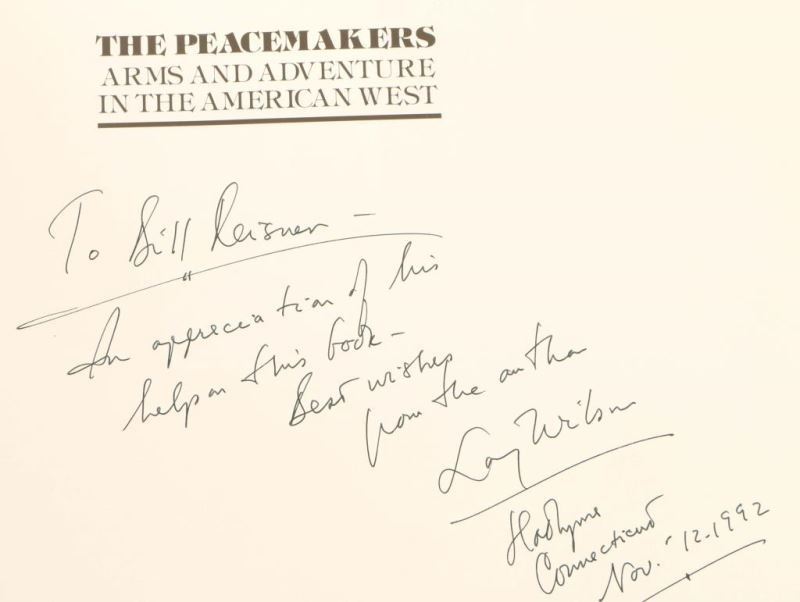 THE PEACEMAKERS
ARMS AND ADVENTURE
IN THE AMERICAN WEST
To Bill Reisner —
In appreciation of his
help on this book —
Best wishes
from the author
Larry Wilson
Hadlyme
Connecticut
Nov. 12. 1992